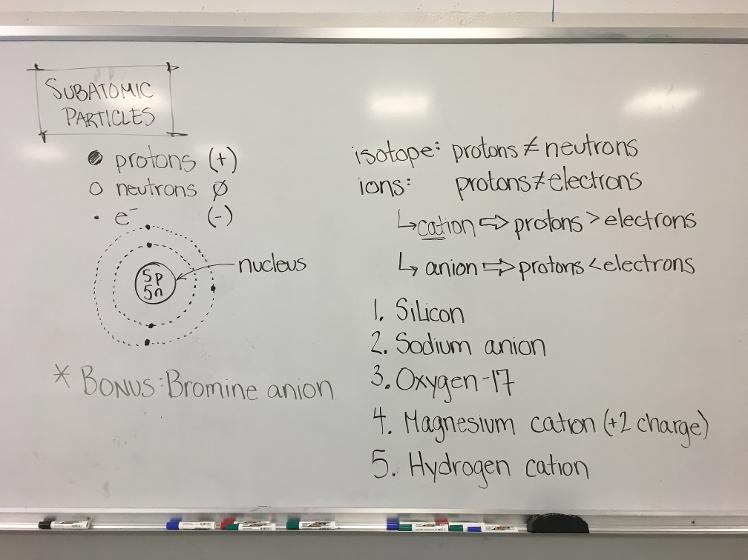 SUBATOMIC
PARTICLES
protons (+)
neutrons Ø
e⁻ (-)
5p
5n
nucleus
* BONUS: Bromine anion
isotope: protons ≠ neutrons
ions: protons ≠ electrons
↳ cation ⇨ protons > electrons
↳ anion ⇨ protons < electrons
1. Silicon
2. Sodium anion
3. Oxygen-17
4. Magnesium cation (+2 charge)
5. Hydrogen cation